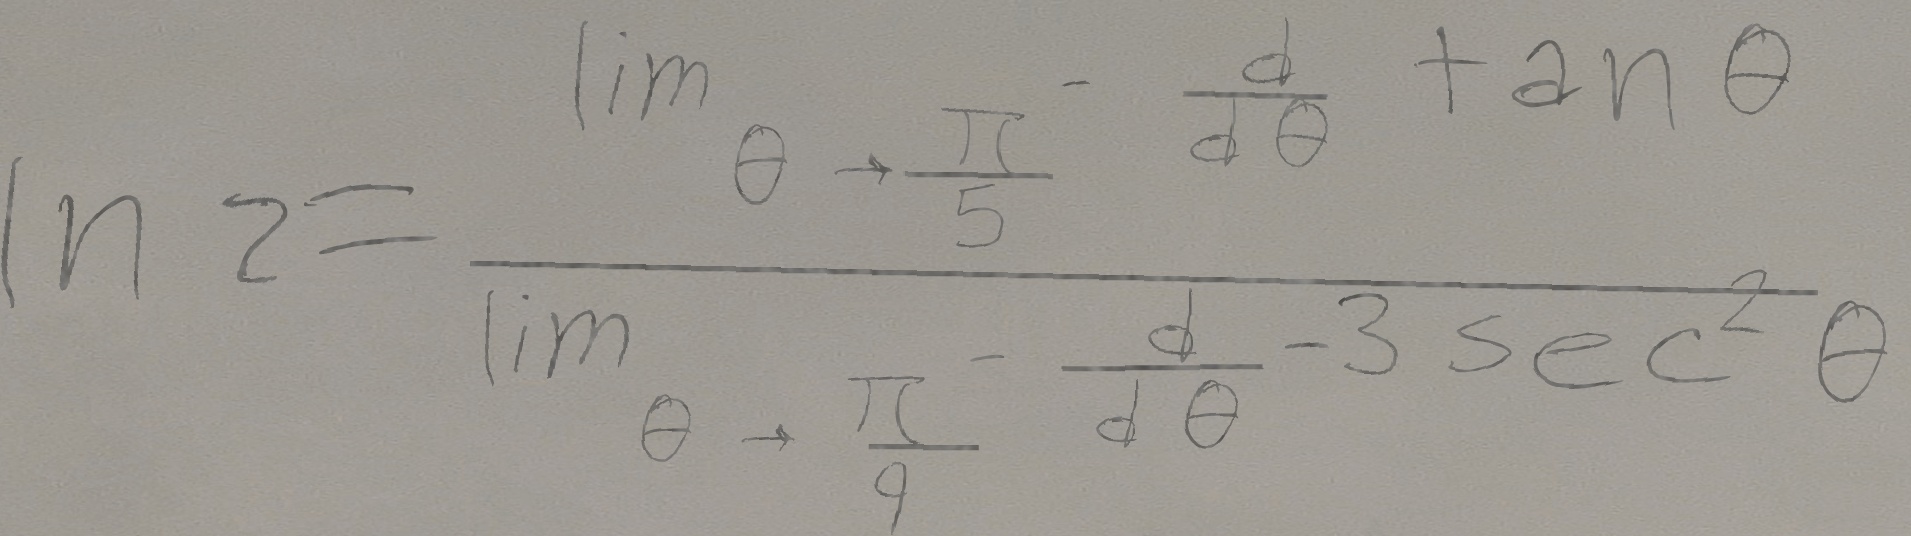 \ln z = \frac{\lim_{\theta \to \frac{\pi}{5}^{-}} \frac{d}{d\theta} \tan \theta}{\lim_{\theta \to \frac{\pi}{9}^{-}} \frac{d}{d\theta} -3 \sec^{2} \theta}